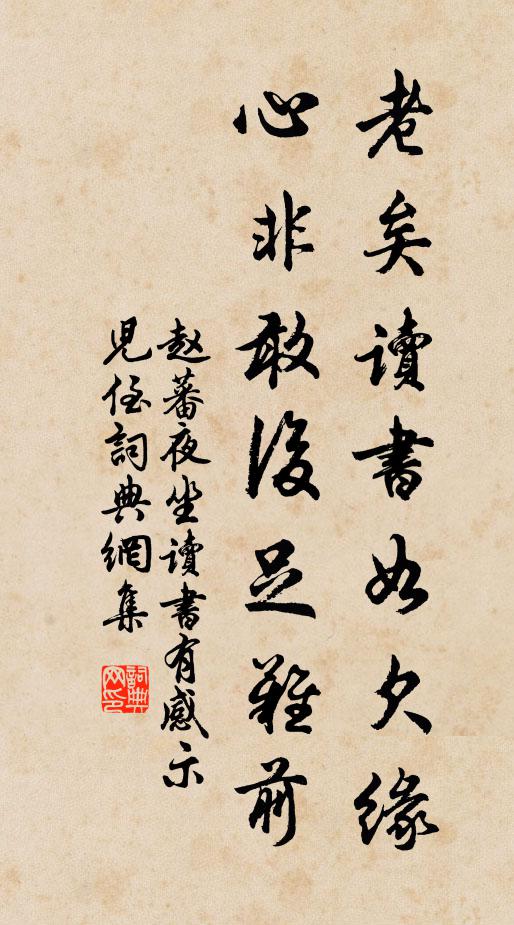 老矣讀書如欠緣
心非敢後足難前
赵蕃夜坐讀書有感示
兒侄詞典網集
詞典网印